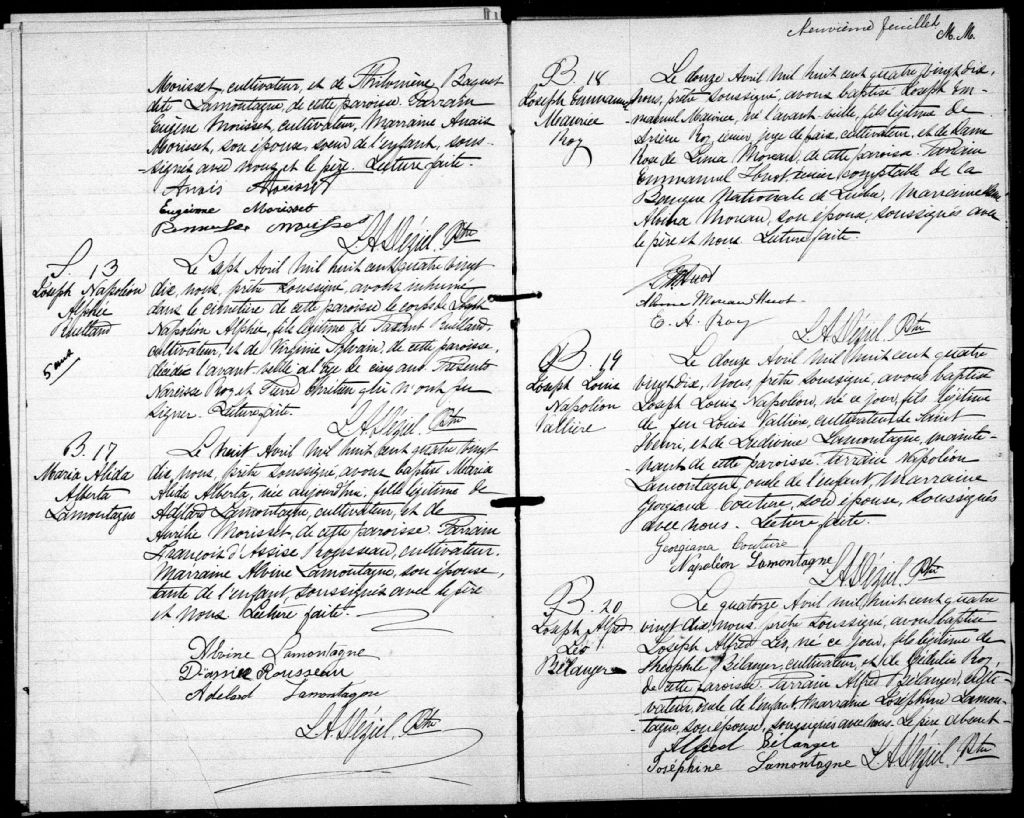 Morisset, cultivateur, et de Philomène Paquet
dite Lamontagne, de cette paroisse. Parrain
Eugène Morisset, cultivateur, Marraine Anais
Morisset, son épouse, soeur de l'enfant, sous-
signés avec nous et le père. Lecture faite.
Anaïs Morisset
Eugène Morisset
Morisset
Ptre
S. 13
Joseph Napoléon
Alphée
Ruelland
5 ans
Le sept Avril mil huit cent quatre vingt
dix, nous, prêtre soussigné, avons inhumé
dans le cimetière de cette paroisse le corps de Joseph
Napoléon Alphée, fils légitime de Ruelland
cultivateur, et de Virginie Sylvain, de cette paroisse,
décédé l'avant veille à l'âge de cinq ans. Présents
Narcisse Roy et Pierre Chrétien qui n'ont pu
signer. Lecture faite.
Ptre
B. 17
Maria Alida
Alberta
Lamontagne
Le huit Avril mil huit cent quatre vingt
dix, nous, prêtre soussigné, avons baptisé Maria
Alida Alberta, née aujourd'hui, fille légitime de
Adélard Lamontagne, cultivateur, et de
Aurélie Morisset, de cette paroisse. Parrain
François d'Assise Rousseau, cultivateur.
Marraine Alvine Lamontagne, son épouse,
tante de l'enfant, soussignés avec le père
et nous. Lecture faite.
Alvine Lamontagne
Rousseau
Adelard Lamontagne
Ptre
Neuvième feuillet M. M.
B. 18
Joseph Emmanuel
Maurice
Roy
Le douze Avril mil huit cent quatre vingt dix,
nous, prêtre soussigné, avons baptisé Joseph Em-
manuel Maurice, né l'avant-veille, fils légitime de
Roy, juge de paix, cultivateur, et de Dame
Rose de Lima Moreau, de cette paroisse. Parrain
Emmanuel comptable de la
Banque Nationale de Marraine Dame
Moreau, son épouse, soussignés avec
le père et nous. Lecture faite.
Moreau
Roy
Ptre
B. 19
Joseph Louis
Napoléon
Vallière
Le douze Avril mil huit cent quatre
vingt dix, nous, prêtre soussigné, avons baptisé
Joseph Louis Napoléon, né ce jour, fils légitime
de feu Louis Vallière, cultivateur, de Saint
Henri, et de Lamontagne, mainte-
nant de cette paroisse. Parrain Napoléon
Lamontagne, oncle de l'enfant, Marraine
Georgiana Couture, son épouse, soussignés
avec nous. Lecture faite.
Georgiana Couture
Napoléon Lamontagne
Ptre
B. 20
Joseph Alfred
Léo
Bélanger
Le quatorze Avril mil huit cent quatre
vingt dix, nous prêtre soussigné, avons baptisé
Joseph Alfred Léo, né ce jour, fils légitime de
Théophile Bélanger, cultivateur, et de Roy,
de cette paroisse. Parrain Alfred Bélanger, culti-
vateur, oncle de l'enfant, Marraine Joséphine Lamon-
tagne, son épouse, soussignés avec nous. Le père absent.
Alfred Bélanger
Joséphine Lamontagne
Ptre